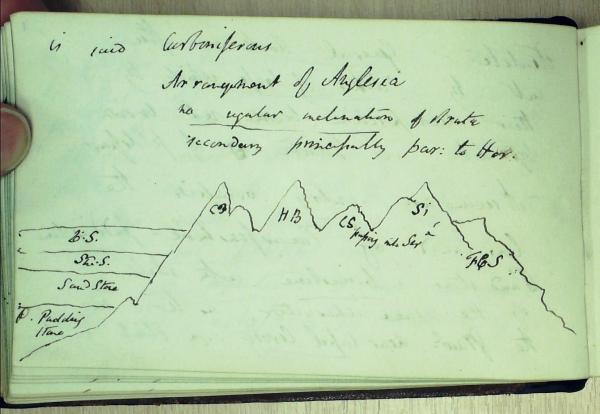 is said Carboniferous
Arrangement of Anglesia
no regular inclination of Strata
secondary principally par: to Hor.
CB HB CS Si
passing into Ser
L.S.
Sh.S.
Sand Stone
P. Pudding
Stone